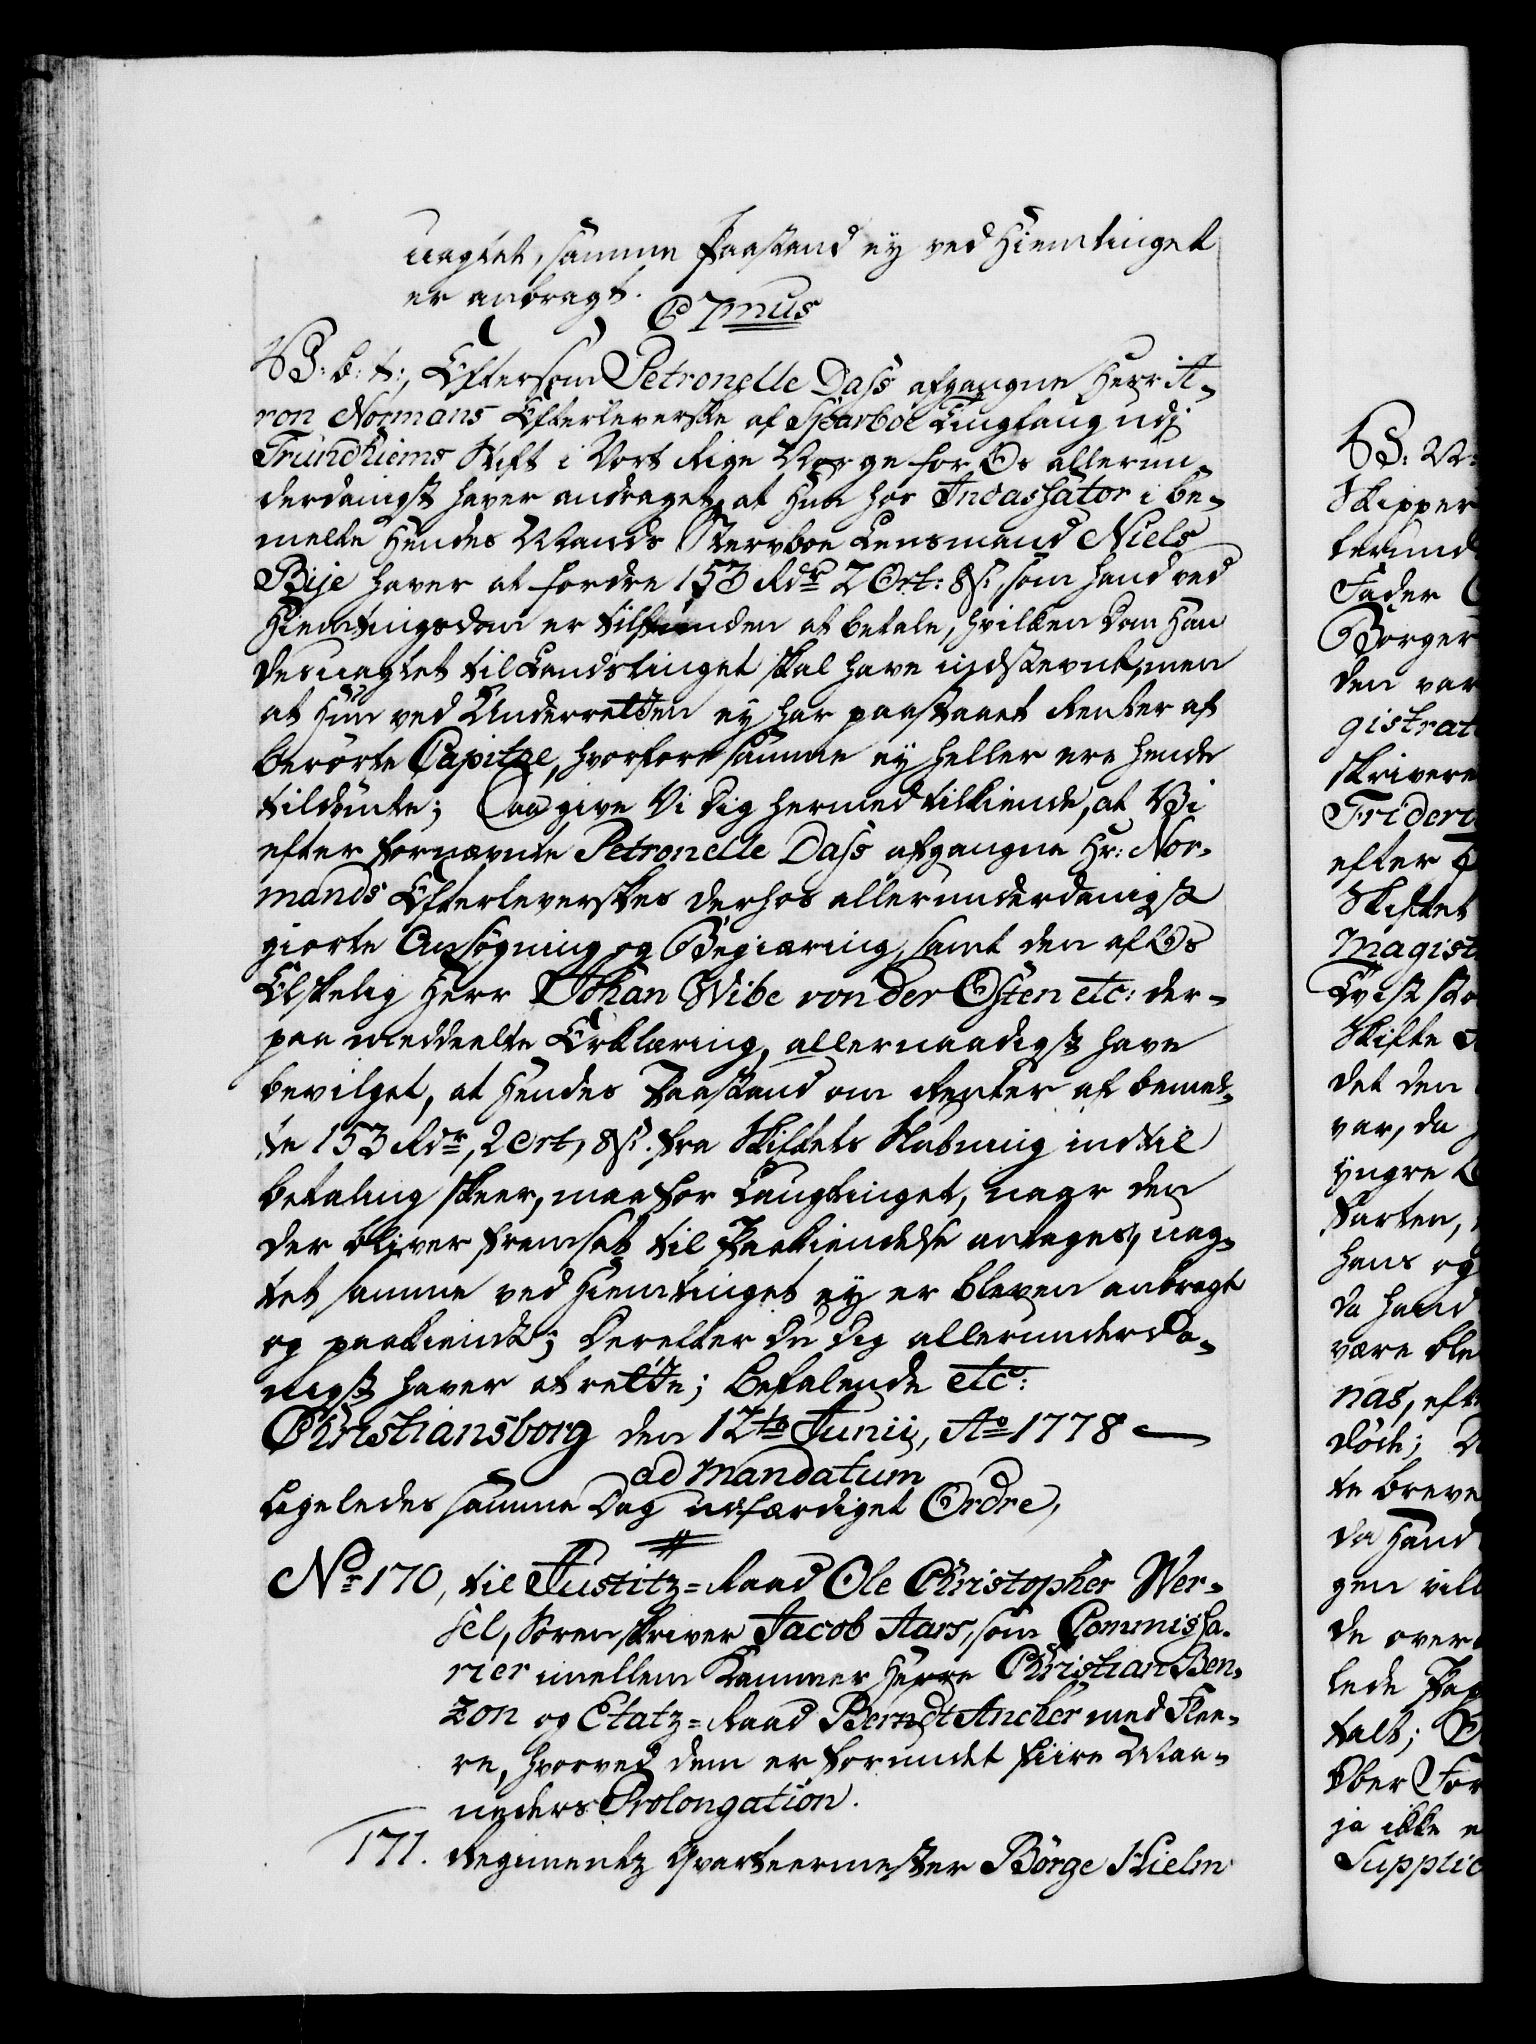 uagtet, samme Paastand ey ved Hiemtinget
er anbragt.
C 7mus
V. G. t:, Eftersom Petronelle Dass afgangne Herr A-
ron Normans Efterleverske af Sparboe Tinglaug udj
Trundhiems Stift i Vort Rige Norge for Os allerun-
derdanigst haver andraget, at Hun hos Incassator i be-
melte Hendes Mands Stervboe Lensmand Niels
Bije haver at fordre 153 Rdr 2 Ort: 8 s:, som hand ved
Hiemtingsdom er tilfunden at betale, hvilken Dom Han
desuagtet til Landstinget skal have indstevnt, men
at Hun ved Underretten ey har paastaaet Renter af
berørte Capital, hvorfore samme ey heller ere hende
tildømte; Saa give Vi dig hermed tilkiende, at Vi
efter fornævnte Petronelle Dass afgangne Hr: Nor-
mands Efterleverskes derhos allerunderdanigst
giorte Ansøgning og Begiæring, samt den af Os
Elskelig Herr Johan Wibe von der Osten etc: der-
paa meddeelte Erklæring, allernaadigst have
bevilget, at Hendes Paastand om Renter af bemel-
te 153 Rdr, 2 Ort, 8 s: fra Skiftets Slutning indtil
betaling skeer, maa for Laugtinget, naar den
der bliver fremsat til Paakiendelse antages, uag-
tet samme ved Hiemtinget ey er bleven anbragt
og paakiendt; Derefter du dig allerunderda-
nigst haver at rette; Befalende etc:
Christiansborg den 12te Junii, Ao 1778
ad mandatum
Ligeledes samme Dag udfærdiget Ordre,
No 170, til Justitz=Raad Ole Christopher Wes-
sel, Sorenskriver Jacob Aars, som Commissa-
rier imellem Kammer Herre Christian Ben-
zon og Etatz=Raad Berndt Ancher med Flee-
re, hvorved dem er forundt fiire Maa-
neders Prolongation.
171. Regimentz Qvarteermester Børge Hielm
V: N:
Skipper
terund
Fader
Borger
den var
gistrat
skrivere
Frideri
efter
Skiftet
Magist
Tvist
Skifte
det den
var, da
yngre
farten,
hans og
da hand
være ble
nas, eft
døde;
te breve
da Hand
gen vil
de over
lede
falt;
Ober For
ja ikke
Supplic